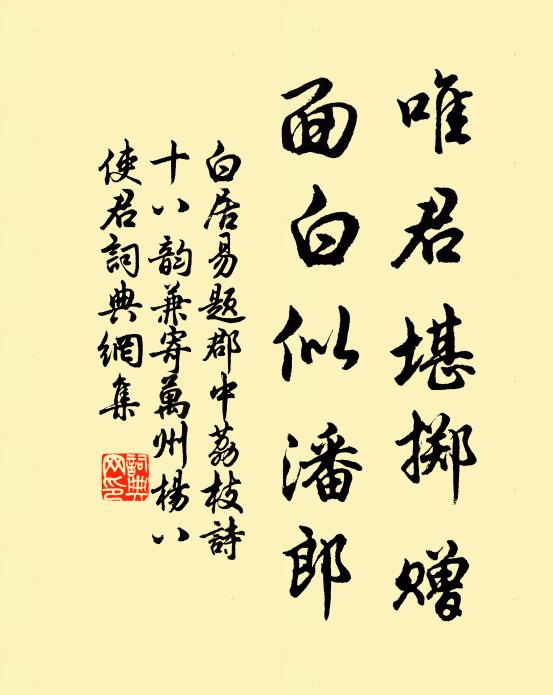 唯君堪掷赠
面白似潘郎
白居易题郡中荔枝詩
十八韵兼寄萬州楊八
使君詞典網集
詞典
网印